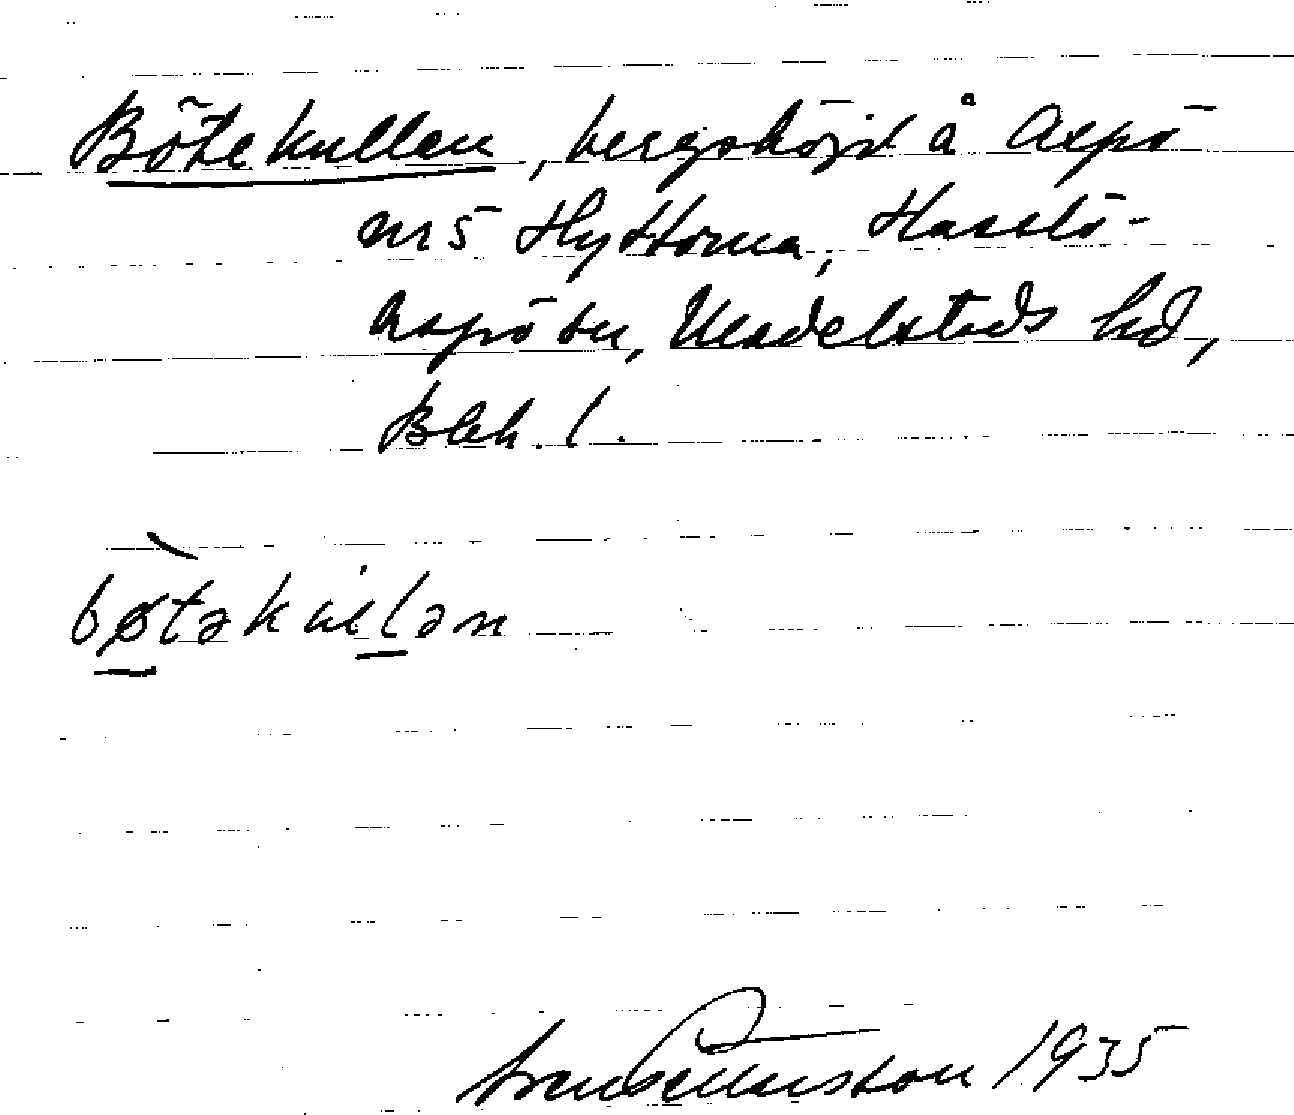 Bötekullen, bergshöjd å Aspö
nr 5 Hyttorna, Hasslö-
Aspöbu, Medelstads hd,
Blek. l.
bøtəkulən
1935